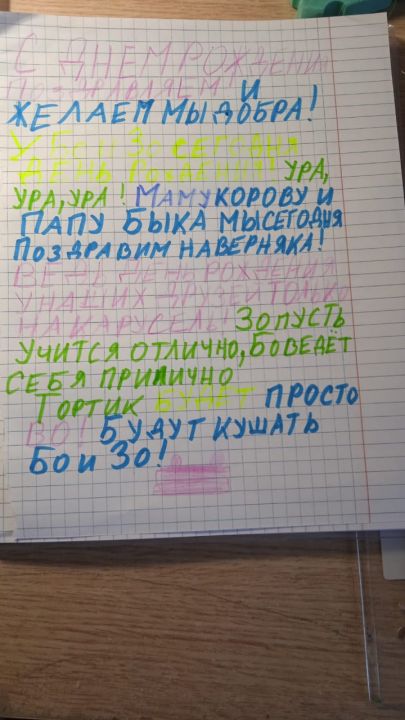 С ДНЕМ РОЖДЕНИ
ПОЗДРАВЛЯЕМ! И
ЖЕЛАЕМ МЫ ДОБРА!
У БО И ЗО СЕГОДНЯ
ДЕНЬ РОЖДЕНИЯ! УРА,
УРА, УРА! МАМУ КОРОВУ И
ПАПУ БЫКА МЫ СЕГОДНЯ
ПОЗДРАВИМ НАВЕРНЯКА!
ВЕДЬ ДЕНЬ РОЖДЕНИЯ
У НАШИХ ДРУЗЕЙ ТОЛЬКО
НА КАРУСЕЛЬ! ЗО ПУСТЬ
УЧИТСЯ ОТЛИЧНО, БО ВЕДЁТ
СЕБЯ ПРИЛИЧНО
ТОРТИК БУДЕТ ПРОСТО
ВО! БУДУТ КУШАТЬ
БО И ЗО!